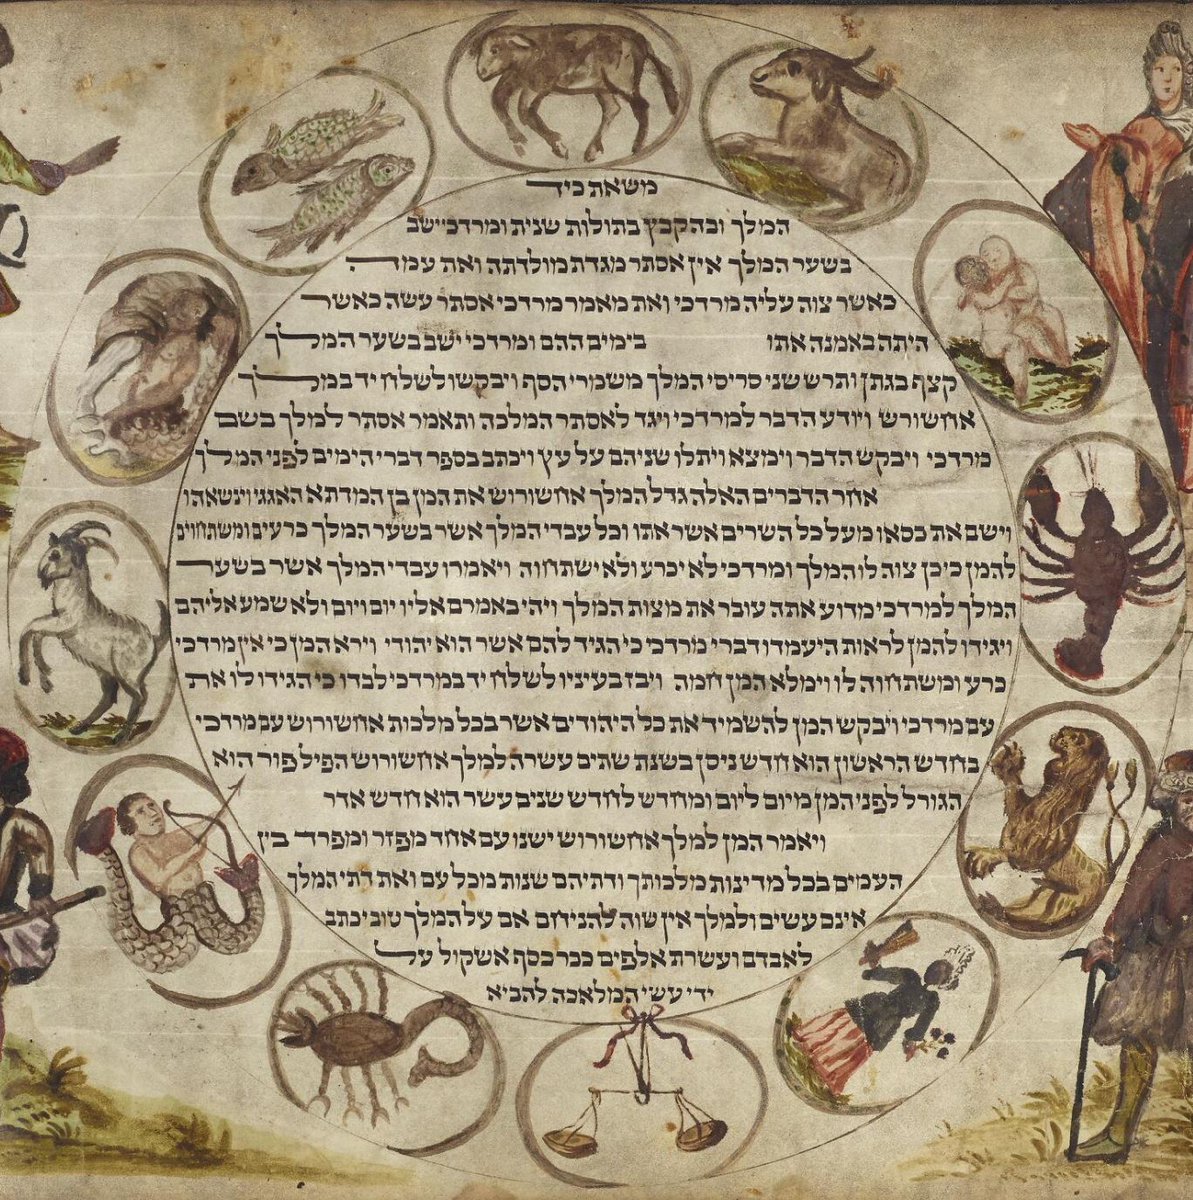 משאת כיד
המלך ובהקבץ בתולות שנית ומרדכי ישב
בשער המלך אין אסתר מגדת מולדתה ואת עמה
כאשר צוה עליה מרדכי ואת מאמר מרדכי אסתר עשה כאשר
היתה באמנה אתו בימים ההם ומרדכי ישב בשער המלך
קצף בגתן ותרש שני סריסי המלך משמרי הסף ויבקשו לשלח יד במלך
אחשורש ויודע הדבר למרדכי ויגד לאסתר המלכה ותאמר אסתר למלך בשם
מרדכי ויבקש הדבר וימצא ויתלו שניהם על עץ ויכתב בספר דברי הימים לפני המלך
אחר הדברים האלה גדל המלך אחשורוש את המן בן המדתא האגגי וינשאהו
וישם את כסאו מעל כל השרים אשר אתו וכל עבדי המלך אשר בשער המלך כרעים ומשתחוים
להמן כי כן צוה לו המלך ומרדכי לא יכרע ולא ישתחוה ויאמרו עבדי המלך אשר בשער
המלך למרדכי מדוע אתה עובר את מצות המלך ויהי באמרם אליו יום ויום ולא שמע אליהם
ויגידו להמן לראות היעמדו דברי מרדכי כי הגיד להם אשר הוא יהודי וירא המן כי אין מרדכי
כרע ומשתחוה לו וימלא המן חמה ויבז בעיניו לשלח יד במרדכי לבדו כי הגידו לו את
עם מרדכי ויבקש המן להשמיד את כל היהודים אשר בכל מלכות אחשורוש עם מרדכי
בחדש הראשון הוא חדש ניסן בשנת שתים עשרה למלך אחשורוש הפיל פור הוא
הגורל לפני המן מיום ליום ומחדש לחדש שנים עשר הוא חדש אדר
ויאמר המן למלך אחשורוש ישנו עם אחד מפזר ומפרד בין
העמים בכל מדינות מלכותך ודתיהם שנות מכל עם ואת דתי המלך
אינם עשים ולמלך אין שוה להניחם אם על המלך טוב יכתב
לאבדם ועשרת אלפים ככר כסף אשקול על
ידי עשי המלאכה להביא